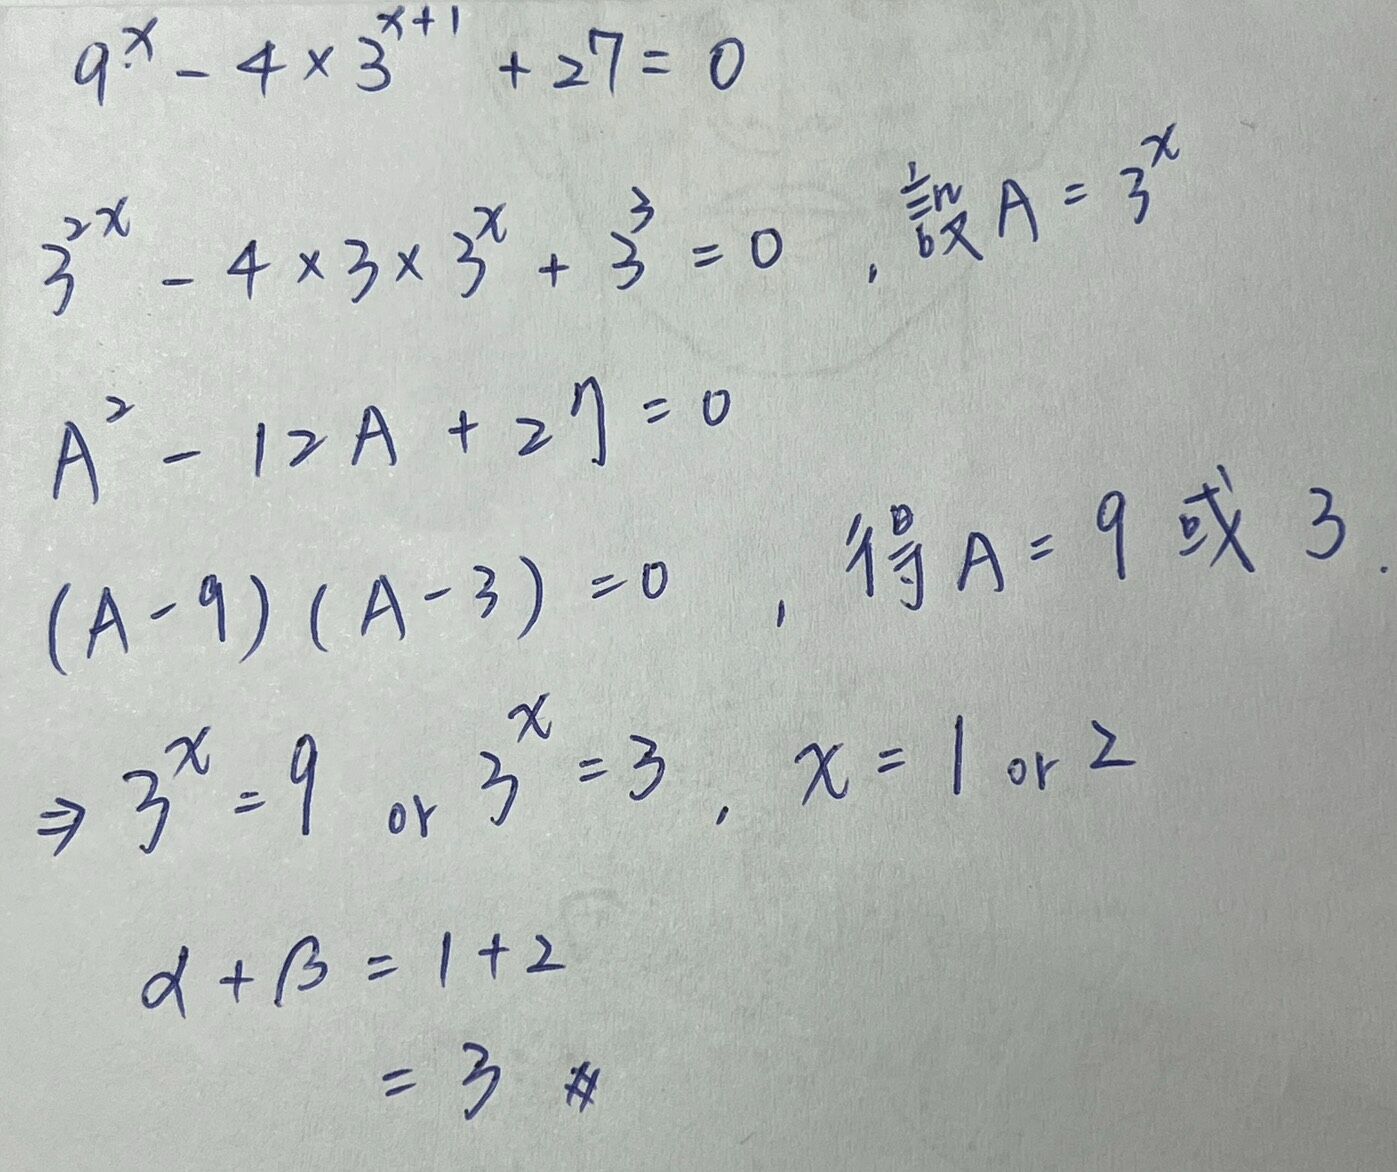 9^x - 4 × 3^{x+1} + 27 = 0
3^{2x} - 4 × 3 × 3^x + 3^3 = 0 , 設 A = 3^x
A^2 - 12A + 27 = 0
(A - 9) (A - 3) = 0 , 得 A = 9 或 3 .
⇒ 3^x = 9 or 3^x = 3 , x = 1 or 2
α + β = 1 + 2
= 3 #